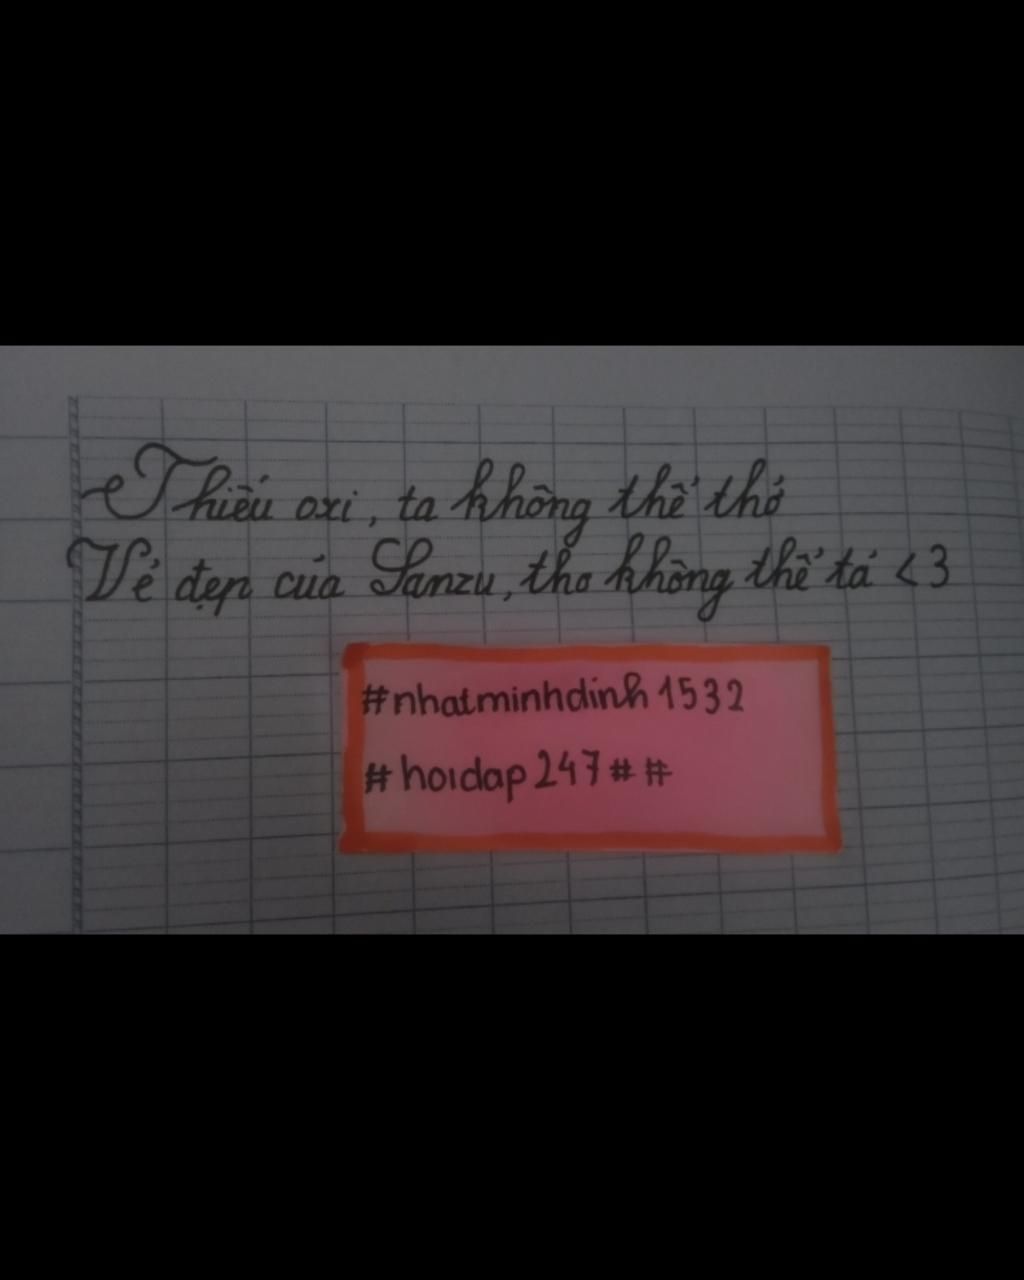 Thiếu oxi, ta không thể thở
Vẻ đẹp của Sanzu, thơ không thể tả <3
#nhatminhdinh1532
#hoidap247##